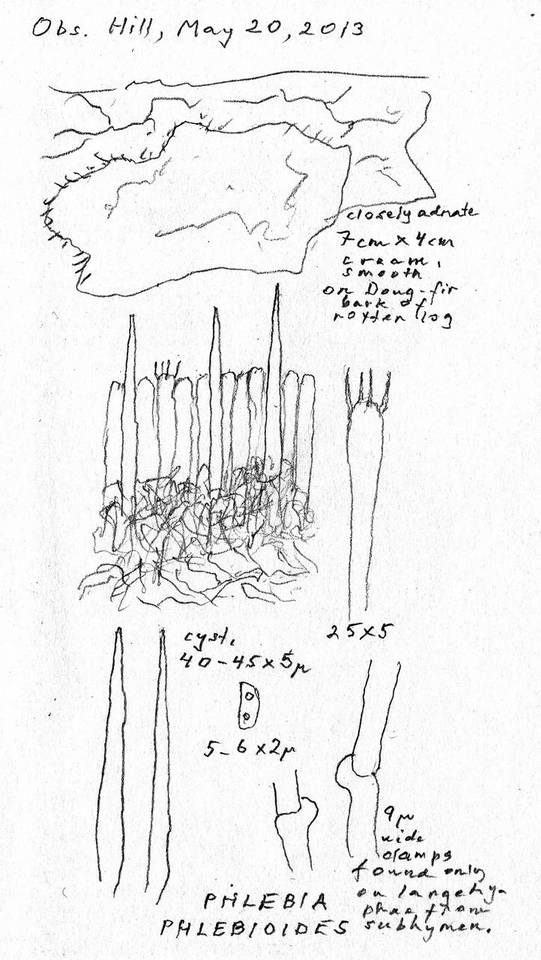 Obs. Hill, May 20, 2013
closely adnate
7cm x 4cm
cream,
smooth
on Doug-fir
bark of
rotten log
25x5
cyst.
40-45x5µ
5-6x2µ
9µ
wide
clamps
found only
on large hy-
phae from
subhymen.
PHLEBIA
PHLEBIOIDES